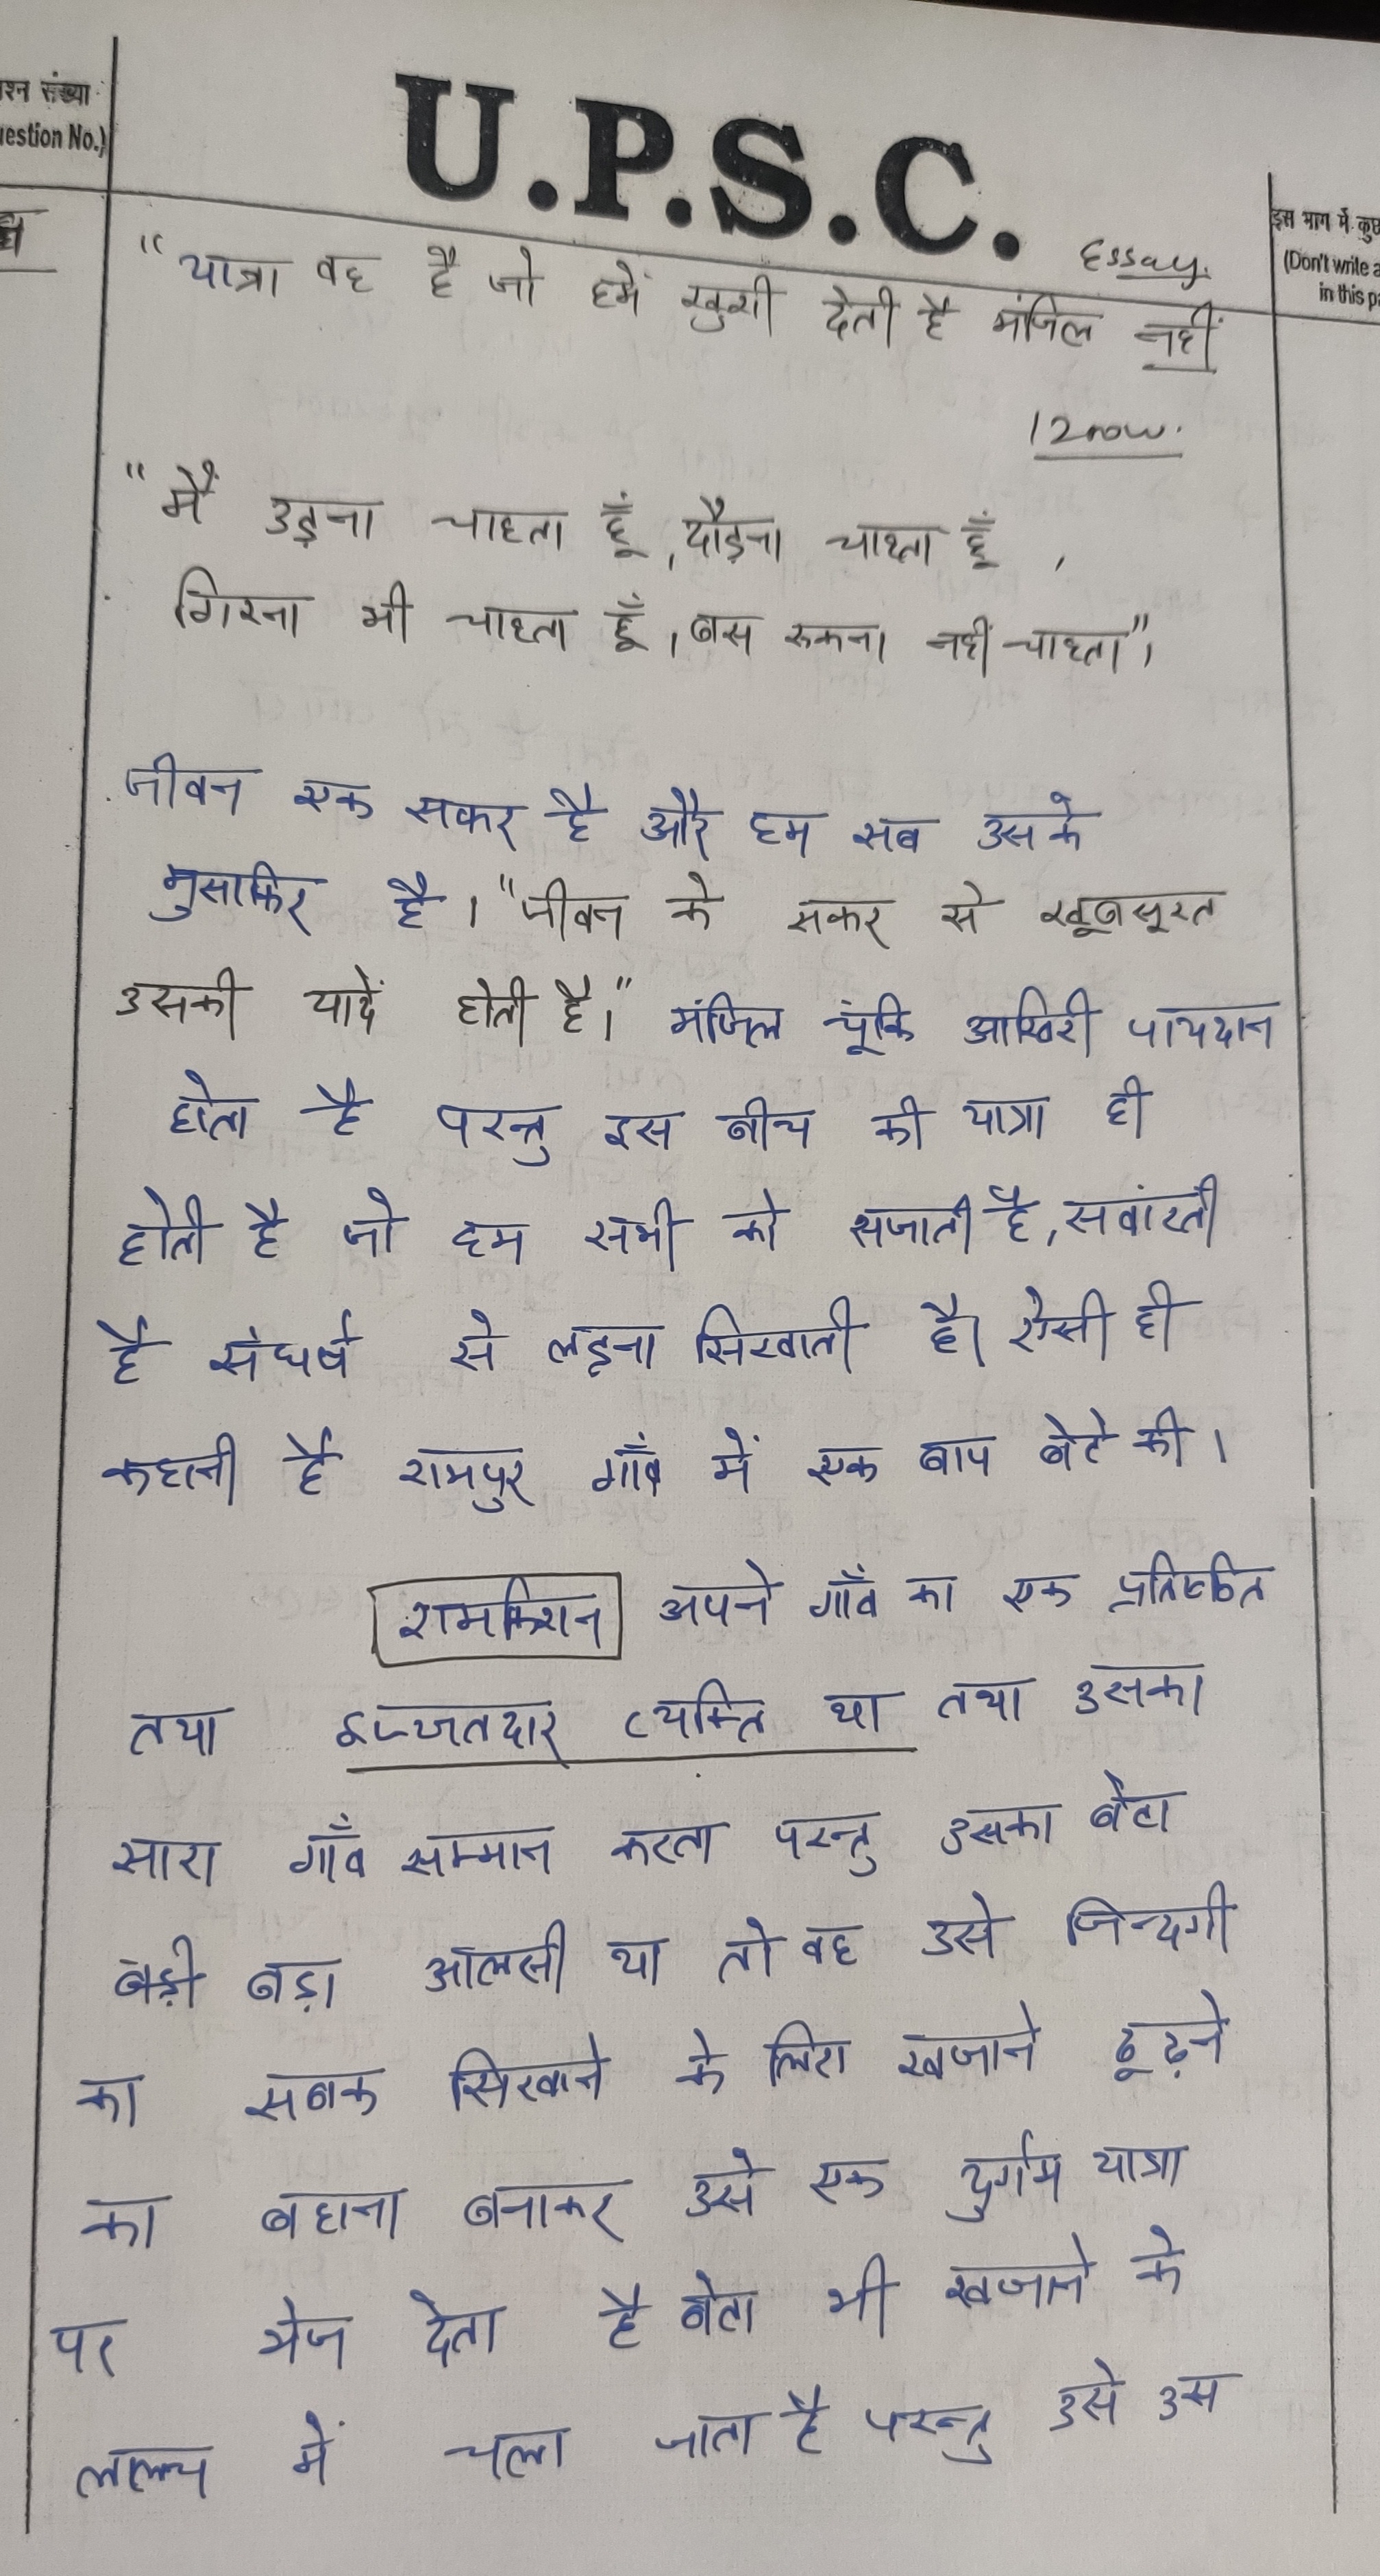 श्न संख्या
uestion No.)
U.P.S.C.
इस भाग में कुछ
(Don't write a
in this pa
Essay.
"यात्रा वह है जो हमें खुशी देती है मंजिल नहीं
1200w.
"मैं उड़ना चाहता हूँ, दौड़ना चाहता हूँ,
गिरना भी चाहता हूँ, बस रुकना नहीं चाहता"।
जीवन एक सफर है और हम सब उसके
मुसाफिर है। "जीवन के सफर से खूबसूरत
उसकी यादें होती है।" मंजिल चूंकि आखिरी पायदान
होता है परन्तु इस बीच की यात्रा ही
होती है जो हम सभी को सजाती है, सवांरती
है संघर्ष से लड़ना सिखाती है। ऐसी ही
कहानी है रामपुर गाँव में एक बाप बेटे की।
रामकिशन अपने गाँव का एक प्रतिष्ठित
तथा इज्जतदार व्यक्ति था तथा उसका
सारा गाँव सम्मान करता परन्तु उसका बेटा
बड़ा आलसी था तो वह उसे जिन्दगी
का सबक सिखाने के लिए खजाने ढूढ़ने
का बहाना बनाकर उसे एक दुर्गम यात्रा
पर भेज देता है बेटा भी खजाने के
लालच में चला जाता है परन्तु उसे उस